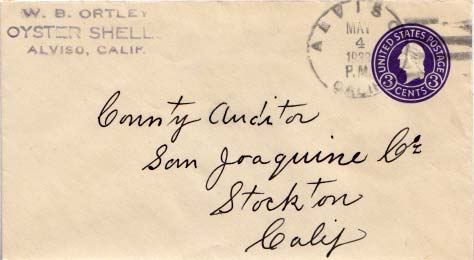 W. B. ORTLEY
OYSTER SHELL
ALVISO, CALIF.
ALVISO
MAY
4
P.M.
CALIF
UNITED STATES POSTAGE
3 CENTS 3
County Auditor
San Joaquine Co
Stockton
Calif